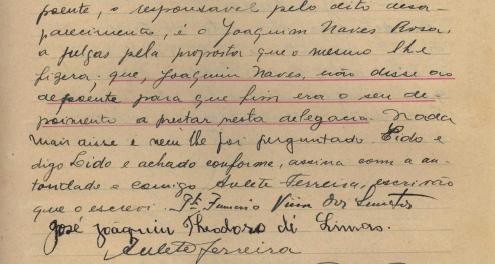 poente, o responsavel pelo dito desa-
parecimento, é o Joaquim Naves Rosa,
a julgar pela proposta que o mesmo lhe
fizera; que, Joaquim Naves, não disse ao
depoente para que fim era o seu de-
poimento a prestar nesta delegacia. Nada
mais disse e nem lhe foi perguntado. Lido e
digo Lido e achado conforme, assina com a au-
toridade e comigo Aulete Ferreira, escrivão
que o escrevi.
José Joaquim Theodoro de Limas.
Aulete Ferreira